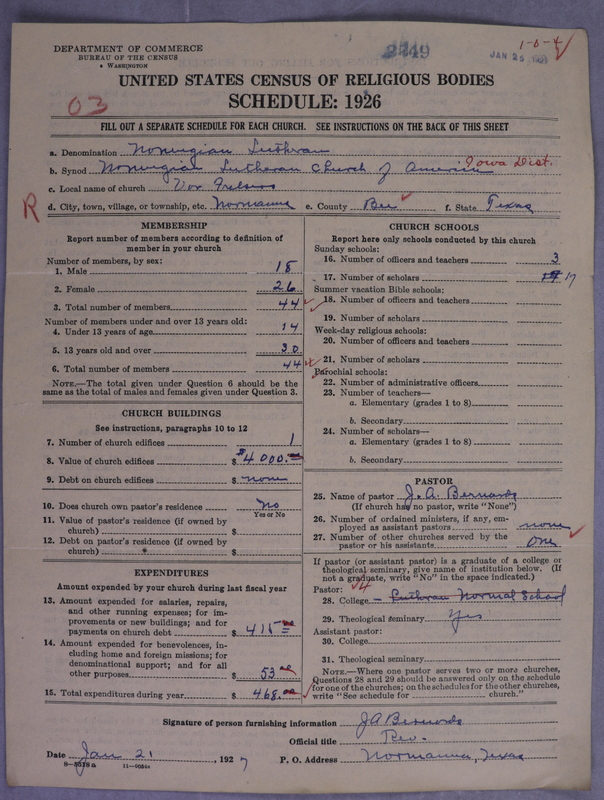 DEPARTMENT OF COMMERCE
BUREAU OF THE CENSUS
WASHINGTON
2249
JAN 25 1927
1-6-4
UNITED STATES CENSUS OF RELIGIOUS BODIES
SCHEDULE: 1926
03
FILL OUT A SEPARATE SCHEDULE FOR EACH CHURCH. SEE INSTRUCTIONS ON THE BACK OF THIS SHEET
a. Denomination Norwegian Lutheran
b. Synod Norwegian Lutheran Church of America Iowa Dist.
c. Local name of church Vor Frelsers
R
d. City, town, village, or township, etc. Normanna e. County Bee f. State Texas
MEMBERSHIP
Report number of members according to definition of
member in your church
Number of members, by sex:
1. Male 18
2. Female 26
3. Total number of members 44
Number of members under and over 13 years old:
4. Under 13 years of age 14
5. 13 years old and over 30
6. Total number of members 44
NOTE.—The total given under Question 6 should be
same as the total of males and females given under Question 3.
CHURCH BUILDINGS
See instructions, paragraphs 10 to 12
7. Number of church edifices 1
8. Value of church edifices $ $4000.00
9. Debt on church edifices $ none
10. Does church own pastor's residence? No
Yes or No
11. Value of pastor's residence (if owned by
church) $
12. Debt on pastor's residence (if owned by
church) $
EXPENDITURES
Amount expended by your church during last fiscal year
13. Amount expended for salaries, repairs,
and other running expenses; for im-
provements or new buildings; and for
payments on church debt $ 415.00
14. Amount expended for benevolences, in-
cluding home and foreign missions; for
denominational support; and for all
other purposes $ 53.00
15. Total expenditures during year $ 468.00
CHURCH SCHOOLS
Report here only schools conducted by this church
Sunday schools:
16. Number of officers and teachers 3
17. Number of scholars 17
Summer vacation Bible schools:
18. Number of officers and teachers
19. Number of scholars
Week-day religious schools:
20. Number of officers and teachers
21. Number of scholars
Parochial schools:
22. Number of administrative officers
23. Number of teachers—
a. Elementary (grades 1 to 8)
b. Secondary
24. Number of scholars—
a. Elementary (grades 1 to 8)
b. Secondary
PASTOR
25. Name of pastor J. A. Bernards
(If church has no pastor, write "None")
26. Number of ordained ministers, if any, em-
ployed as assistant pastors none
27. Number of other churches served by the
pastor or his assistants One
If pastor (or assistant pastor) is a graduate of a college or
theological seminary, give name of institution below. (If
not a graduate, write "No" in the space indicated.)
Pastor:
28. College Luthran Normal School
29. Theological seminary Yes
Assistant pastor:
30. College
31. Theological seminary
NOTE.—Where one pastor serves two or more churches,
Questions 28 and 29 should be answered only on the schedule
for one of the churches; on the schedules for the other churches,
write "See schedule for church."
Signature of person furnishing information J A Bernards
Official title Rev.
Date Jan 21, 1927 P. O. Address Normanna, Texas